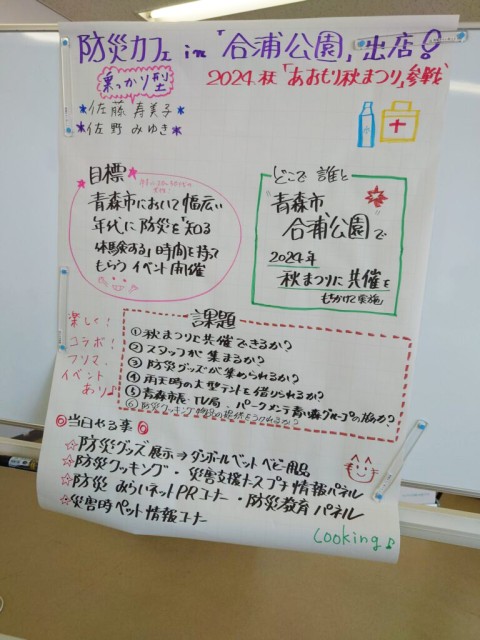 防災カフェ in 「合浦公園」出店!
乗っかり型
2024.秋「あおもり秋まつり」参戦
★佐藤 寿美子★
★佐野 みゆき★
目標
青森市において幅広い
年代に防災を「知る
体験する」時間を持って
もらうイベント開催
どこで 誰と
青森市
合浦公園で
2024年
秋まつりに共催を
もちかけて実施
課題
①秋まつりと共催できるか?
②スタッフが集まるか?
③防災グッズが集められるか?
④雨天時の大型テントを借りられるか?
⑤青森市長・TV局・パークメンテ青い森グループの協力?
⑥防災クッキング物品の提供をうけれるか?
楽しく!
コラボ!
フリス、
イベント
あり♪
◎当日やる事◎
☆防災グッズ展示⇒ダンボールベット ベビー用品
☆防災クッキング・災害支援ナースプチ情報パネル
☆防災 みらいネットPRコーナー・防災教育パネル
☆災害時ペット情報コーナー
cooking♪